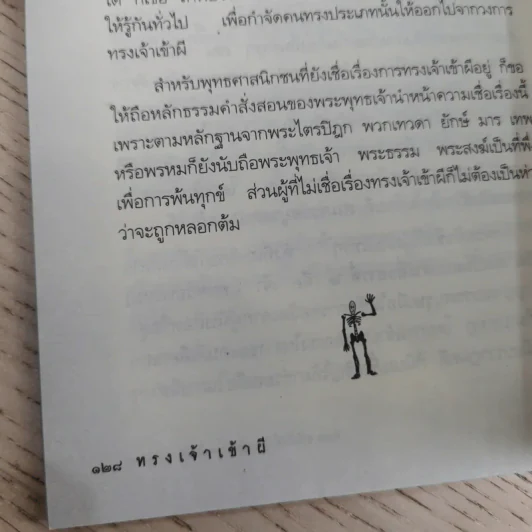 ให้รู้กันทั่วไป เพื่อกำจัดคนทรงประเภทนั้นให้ออกไปจากวงการ
ทรงเจ้าเข้าผี
สำหรับพุทธศาสนิกชนที่ยังเชื่อเรื่องการทรงเจ้าเข้าผีอยู่ ก็ขอ
ให้ถือหลักธรรมคำสั่งสอนของพระพุทธเจ้านำหน้าความเชื่อเรื่องนี้
เพราะตามหลักฐานจากพระไตรปิฎก พวกเทวดา ยักษ์ มาร เทพ
หรือพรหมก็ยังนับถือพระพุทธเจ้า พระธรรม พระสงฆ์เป็นที่พึ่
เพื่อการพ้นทุกข์ ส่วนผู้ที่ไม่เชื่อเรื่องทรงเจ้าเข้าผีก็ไม่ต้องเป็นห่ว
ว่าจะถูกหลอกต้ม
๑๒๘ ทรงเจ้าเข้าผี